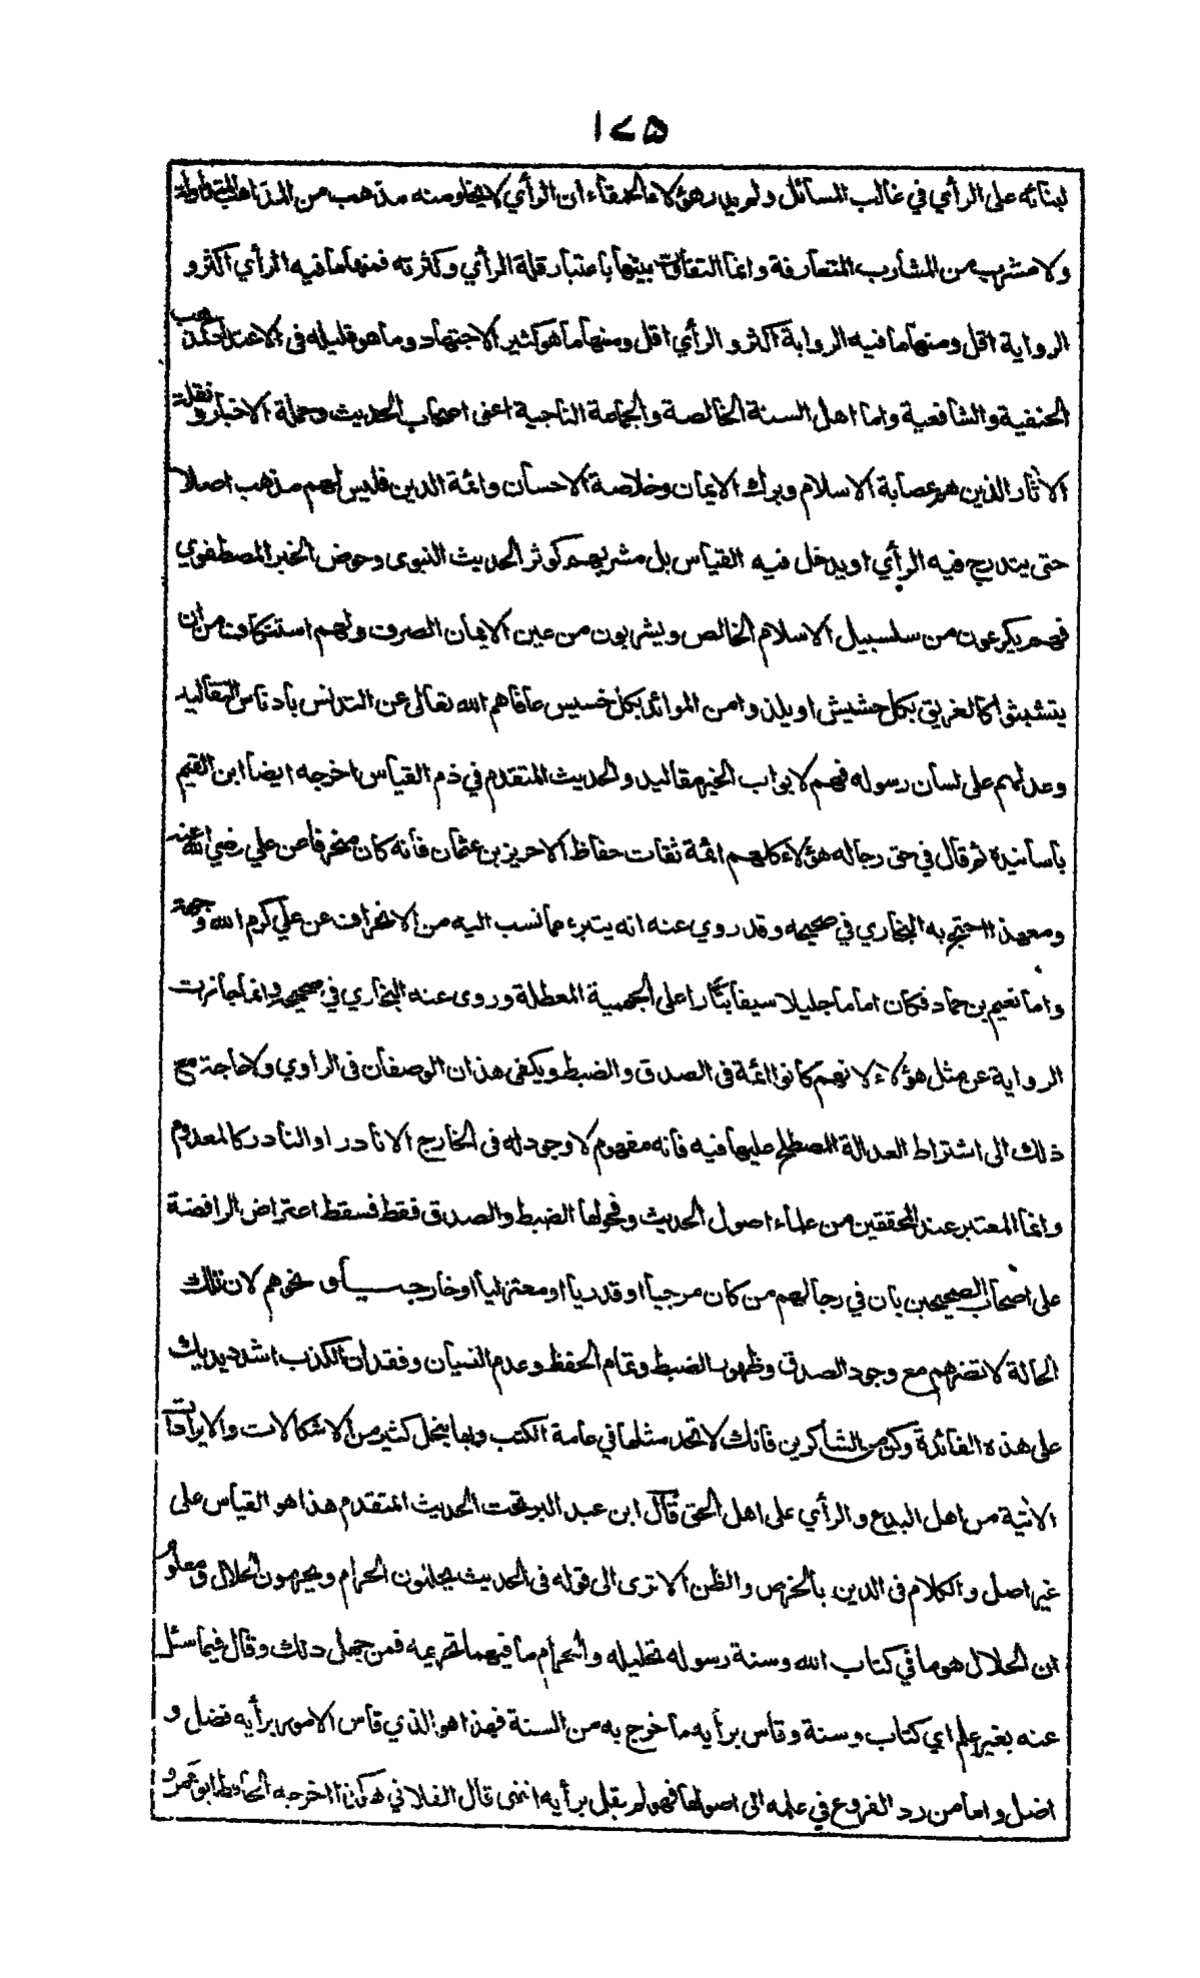 ١٧٥
لبنائه على الرأي في غالب المسائل ولم يدر هؤلاء الحمقاء ان الرأي لا يخلو منه مذهب من المذاهب المتداولة
ولا مشرب من المشارب المتعارفة وانما التفاوت بينها باعتبار قلة الرأي وكثرته فمنها ما فيه الرأي اكثر و
الرواية اقل ومنها ما فيه الرواية اكثر والرأي اقل ومنها ما هو كثير الاجتهاد وما هو قليله في الاعتداد كمذهب
الحنفية والشافعية واما اهل السنة الخالصة والجماعة الناجية اعنى اصحاب الحديث وحملة الاخبار ونقلة
الآثار الذين هم عصابة الاسلام وبرك الايمان وخلاصة الاحسان وائمة الدين فليس لهم مذهب اصلا
حتى يندرج فيه الرأي او يدخل فيه القياس بل مشربهم كوثر الحديث النبوى وحوض الخبر المصطفوي
فهم يكرعون من سلسبيل الاسلام الخالص ويشربون من عين الايمان الصرف ولهم استنكاف من ان
يتشبثوا كالغريق بكل حشيش او يلذوا من الموائد بكل خسيس عافاهم الله تعالى عن التدنس بادناس التقاليد
وعدلهم على لسان رسوله فهم لابواب الخير مقاليد والحديث المتقدم في ذم القياس اخرجه ايضا ابن القيم
باسانيده ثم قال في حق رجاله هؤلاء كلهم ائمة ثقات حفاظ الا حريز بن عثمان فانه كان منحرفا عن علي رضي الله عنه
ومع هذا احتج به البخاري في صحيحه وقد روي عنه انه يتبرء مما نسب اليه من الانحراف عن علي كرم الله وجهه
واما نعيم بن حماد فكان اماما جليلا سيفا بتّارا على الجهمية المعطلة وروى عنه البخاري في صحيحه وانما جازت
الرواية عن مثل هؤلاء لانهم كانوا ائمة فى الصدق والضبط ويكفى هذان الوصفان فى الراوي ولا حاجة مع
ذلك الى اشتراط العدالة المصطلح عليها فيه فانه مفهوم لا وجود له فى الخارج الا نادر او النادر كالمعدوم
وانما المعتبر عند المحققين من علماء اصول الحديث وفحولها الضبط والصدق فقط فسقط اعتراض الرافضة
على اصحاب الصحيحين بان في رجالهم من كان مرجيا او قدريا او معتزليا او خارجيا ونحوهم لان تلك
الحالة لا تضرهم مع وجود الصدق وظهور الضبط وتمام الحفظ وعدم النسيان وفقدان الكذب اشدد يديك
على هذه الفائدة وكن من الشاكرين فانك لا تجد مثلها في عامة الكتب وبها ينحل كثير من الاشكالات والايرادات
الآتية من اهل البدع والرأي على اهل الحق قال ابن عبد البر تحت الحديث المتقدم هذا هو القياس على
غير اصل والكلام فى الدين بالخرص والظن الا ترى الى قوله فى الحديث يحلون الحرام ويحرمون الحلال ومعلوم
ان الحلال هو ما في كتاب الله وسنة رسوله تحليله والحرام ما فيهما تحريمه فمن جهل ذلك وقال فيما سئل
عنه بغير علم اي كتاب وسنة وقاس برأيه ما خرج به من السنة فهذا هو الذي قاس الامور برأيه فضل و
اضل واما من رد الفروع في علمه الى اصولها فهو لم يقل برأيه انتهى قال الفلاني هكذا اخرجه الحافظ ابو عمرو